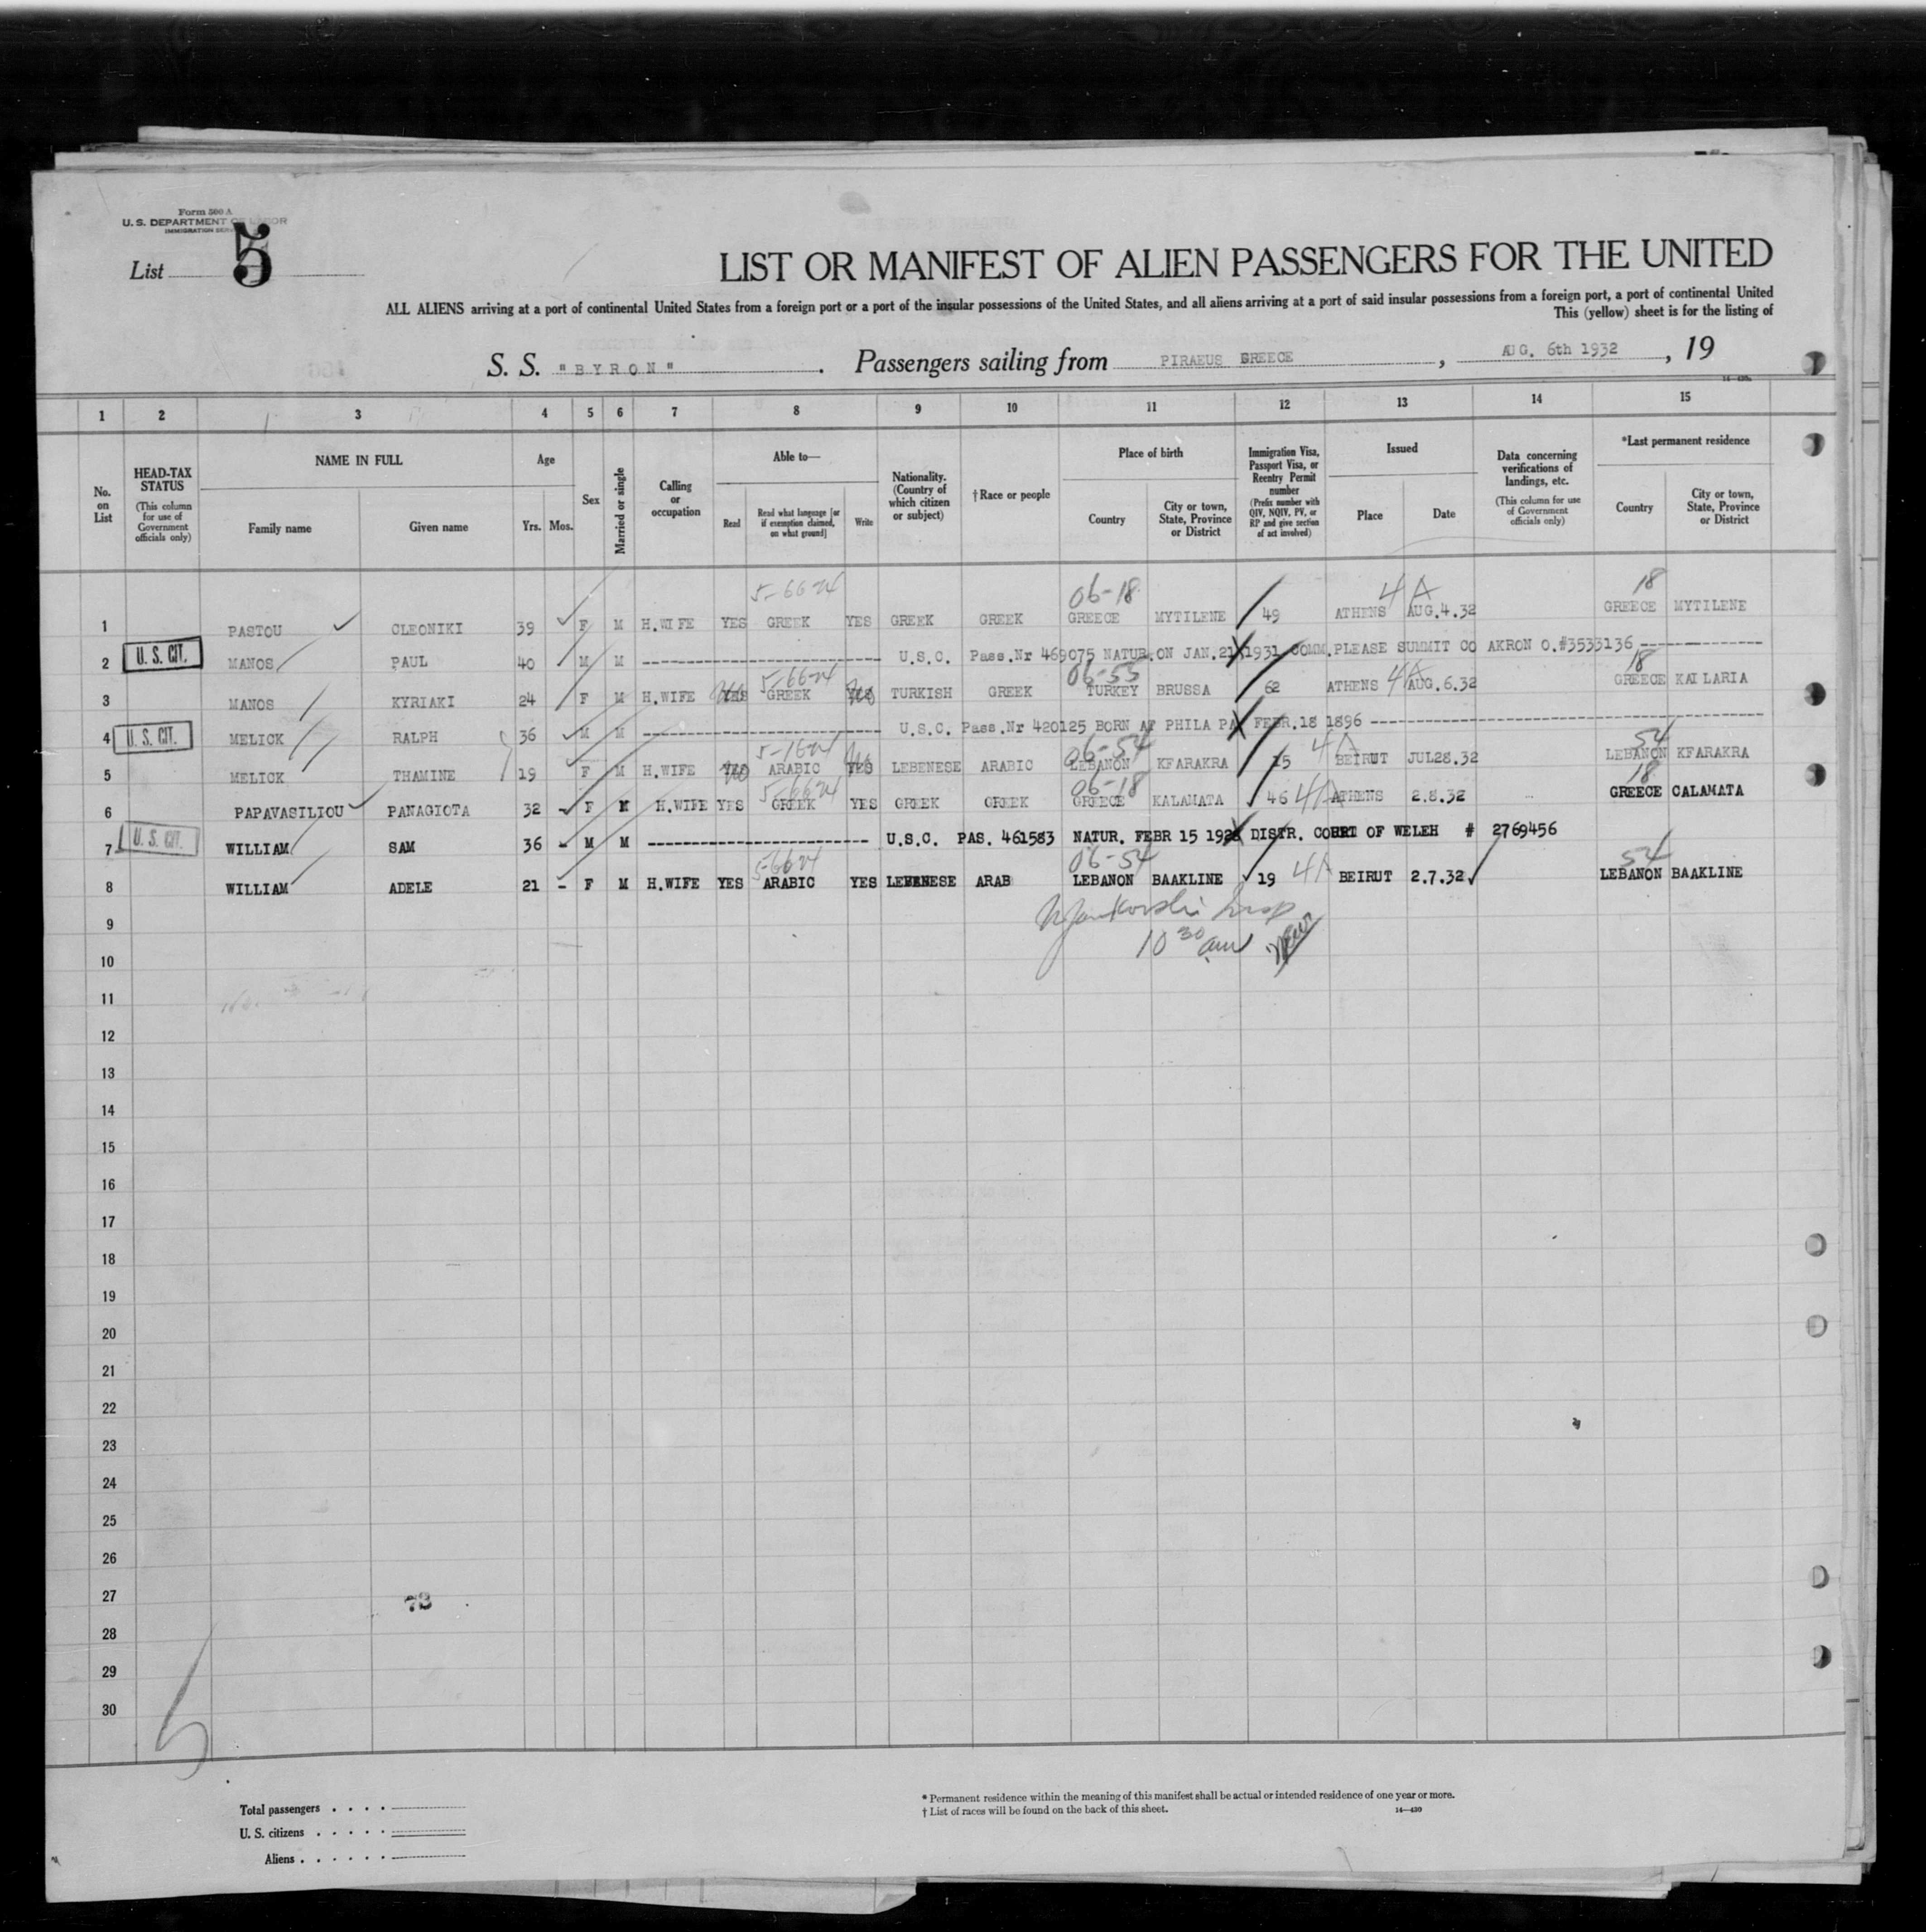 Form 500 A
U. S. DEPARTMENT OF LABOR
IMMIGRATION
List 5
LIST OR MANIFEST OF ALIEN PASSENGERS FOR THE UNITED
ALL ALIENS arriving at a port of continental United States from a foreign port or a port of the insular possessions of the United States, and all aliens arriving at a port of said insular possessions from a foreign port, a port of continental United
This (yellow) sheet is for the listing of
S. S. "BYRON" . Passengers sailing from PIRAEUS GREECE , AUG. 6th 1932 , 19
1 2 3 4 5 6 7 8 9 10 11 12 13 14 15
No. on List
HEAD-TAX STATUS (This column for use of Government officials only)
NAME IN FULL Family name Given name
Age Yrs. Mos.
Sex
Married or single
Calling or occupation
Able to— Read Read what language [or if exemption claimed, on what ground] Write
Nationality. (Country of which citizen or subject)
†Race or people
Place of birth Country City or town, State, Province or District
Immigration Visa, Passport Visa, or Reentry Permit number (Prefix number with QIV, NQIV, PV, or RP and give section of act involved)
Issued Place Date
Data concerning verifications of landings, etc. (This column for use of Government officials only)
*Last permanent residence Country City or town, State, Province or District
5-6624 06-18 4A 18
1 PASTOU CLEONIKI 39 F M H.WIFE YES GREEK YES GREEK GREEK GREECE MYTILENE 49 ATHENS AUG.4.32 GREECE MYTILENE
2 U. S. CIT. MANOS PAUL 40 M M U.S.C. Pass.Nr 469075 NATUR.ON JAN.21 1931 COMM.PLEASE SUMMIT CO AKRON O.#3533136
5-6624 06-55 4A 18
3 MANOS KYRIAKI 24 F M H.WIFE YES GREEK YES TURKISH GREEK TURKEY BRUSSA 62 ATHENS AUG.6.32 GREECE KAILARIA
4 U. S. CIT. MELICK RALPH 36 M M U.S.C. Pass.Nr 420125 BORN AT PHILA PA FEBR.18 1896
5-1624 06-54 4A 54
5 MELICK THAMINE 19 F M H.WIFE ARABIC YES LEBENESE ARABIC LEBANON KFARAKRA 15 BEIRUT JUL28.32 LEBANON KFARAKRA
5-6624 06-18 4A 18
6 PAPAVASILIOU PANAGIOTA 32 - F M H.WIFE YES GREEK YES GREEK GREEK GREECE KALAMATA 46 ATHENS 2.8.32 GREECE CALAMATA
7 U. S. CIT. WILLIAM SAM 36 - M M U.S.C. PAS. 461583 NATUR. FEBR 15 192 DISTR. COURT OF WELEH # 2769456
5-6624 06-54 4A 54
8 WILLIAM ADELE 21 - F M H.WIFE YES ARABIC YES LEBENESE ARAB LEBANON BAAKLINE 19 BEIRUT 2.7.32 LEBANON BAAKLINE
9
10 10 30 am
11
12
13
14
15
16
17
18
19
20
21
22
23
24
25
26
27 73
28
29
30
5
Total passengers . . . .
U. S. citizens . . . . .
Aliens . . . . . .
* Permanent residence within the meaning of this manifest shall be actual or intended residence of one year or more.
† List of races will be found on the back of this sheet. 14—430